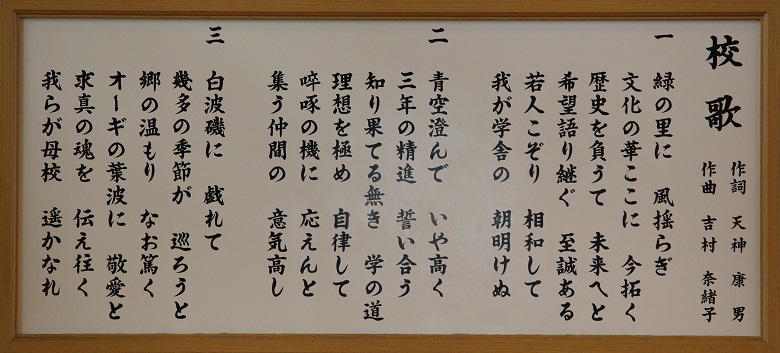 校歌
作詞 天神 康男
作曲 吉村 奈緒子
一
緑の里に 風揺らぎ
文化の華ここに 今拓く
歴史を負うて 未来へと
希望語り継ぐ 至誠ある
若人こぞり 相和して
我が学舎の 朝明けぬ
二
青空澄んで いや高く
三年の精進 誓い合う
知り果てる無き 学の道
理想を極め 自律して
啐啄の機に 応えんと
集う仲間の 意気高し
三
白波磯に 戯れて
幾多の季節が 巡ろうと
郷の温もり なお篤く
オーギの葉波に 敬愛と
求真の魂を 伝え往く
我らが母校 遥かなれ